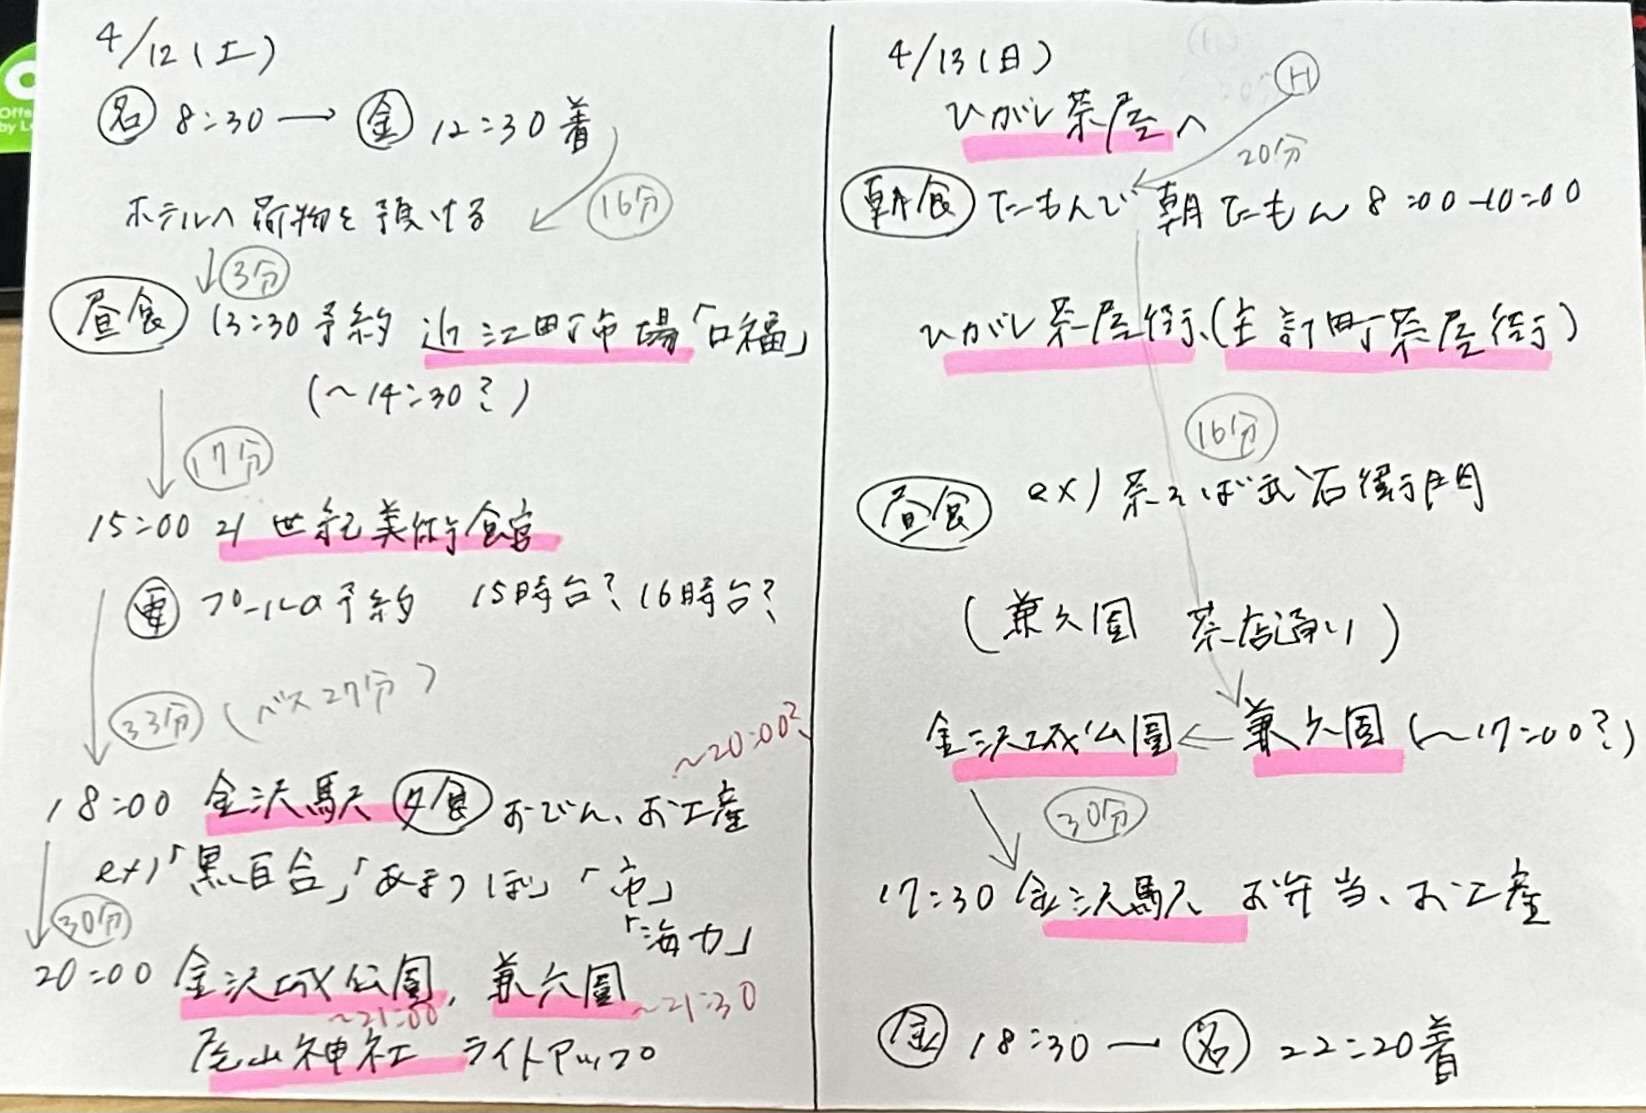 4/12(土)
名 8:30 → 金 12:30着
16分
ホテルへ荷物を預ける
3分
昼食 13:30予約 近江町市場「口福」
(~14:30?)
17分
15:00 21世紀美術館
電 プールの予約 15時台? 16時台?
33分 (バス27分)
~20:00?
18:00 金沢駅 夕食 おでん、お土産
ex)「黒百合」「あまつぼ」「」
「海力」
30分
20:00 金沢城公園, 兼六園
~21:00
~21:30
尾山神社 ライトアップ
4/13(日)
H
ひがし茶屋へ
20分
朝食 たもんで 朝たもん 8:00-10:00
ひがし茶屋街、(主計町茶屋街)
16分
昼食 ex) 茶そば
(兼六園 茶店通り)
金沢城公園 ← 兼六園 (~17:00?)
30分
17:30 金沢駅 お弁当、お土産
金 18:30 — 名 22:20着
Offe
by L